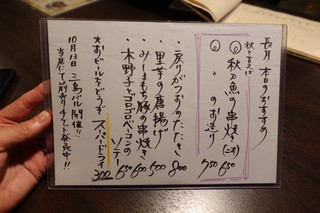 長月 本日のおすすめ
秋と言えば
◎秋刀魚の串焼き(二本) 650
◎〃のお造り 750
・戻りがつおのたたき 800
・里芋の唐揚げ 500
・みしまもち豚の串焼き 600
・木野子とゴロゴロベーコンのソテー 650
★おビールもどうぞ スーパードライ 300
10月13日 三島バル開催!!
当店にて前売りチケット発売中!!